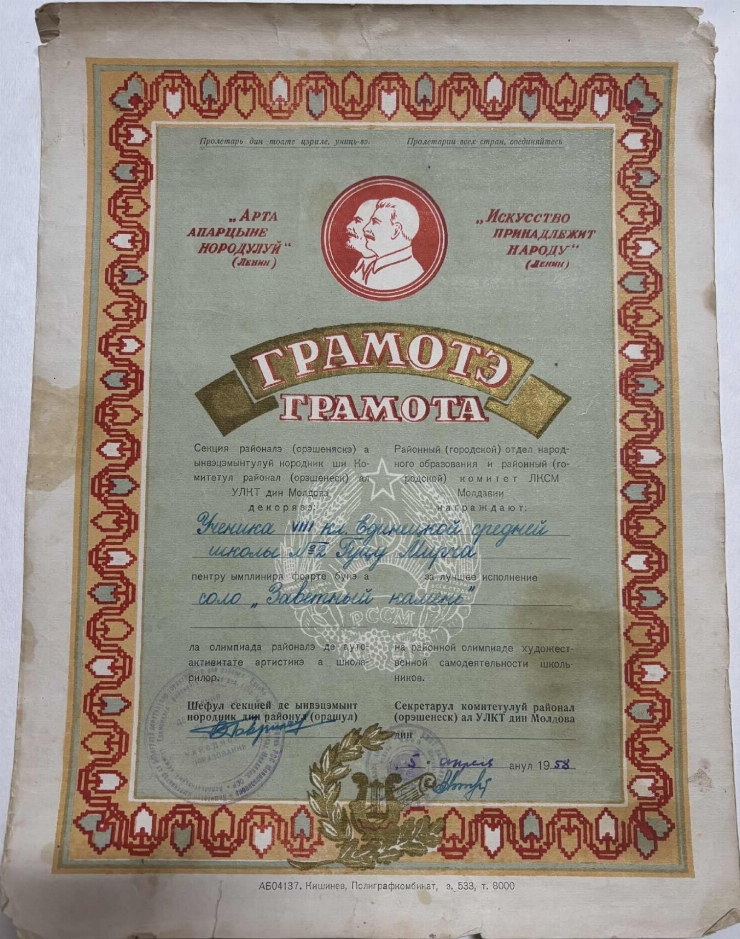 Пролетарь дин тоате цэриле, униць-вэ.
Пролетарии всех стран, соединяйтесь
„Арта
апарцыне
нородулуй“
(Ленин)
„Искусство
принадлежит
народу“
(Ленин)
ГРАМОТЭ
ГРАМОТА
Секция районалэ (орэшеняскэ) а
ынвэцэмынтулуй нородник ши Ко-
митетул районал (орэшенеск) ал
УЛКТ дин Молдова
декорязэ:
Районный (городской) отдел народ-
ного образования и районный (го-
родской) комитет ЛКСМ
Молдавии
награждают:
Ученика VIII кл. Единецкой средней
школы №2 Гуцу Мирча
пентру ымплиниря фоарте бунэ а
за лучшее исполнение
соло „Заветный камень“
РССМ
ла олимпиада районалэ де ауто-
активитате артистикэ а школа-
рилор.
на районной олимпиаде художест-
венной самодеятельности школь-
ников.
Шефул секцией де ынвэцэмынт
нородник дин районул (орашул)
Секретарул комитетулуй районал
(орэшенеск) ал УЛКТ дин Молдова
дин
5 апреля анул 1958
АБ04137. Кишинев, Полиграфкомбинат, з. 533, т. 8000